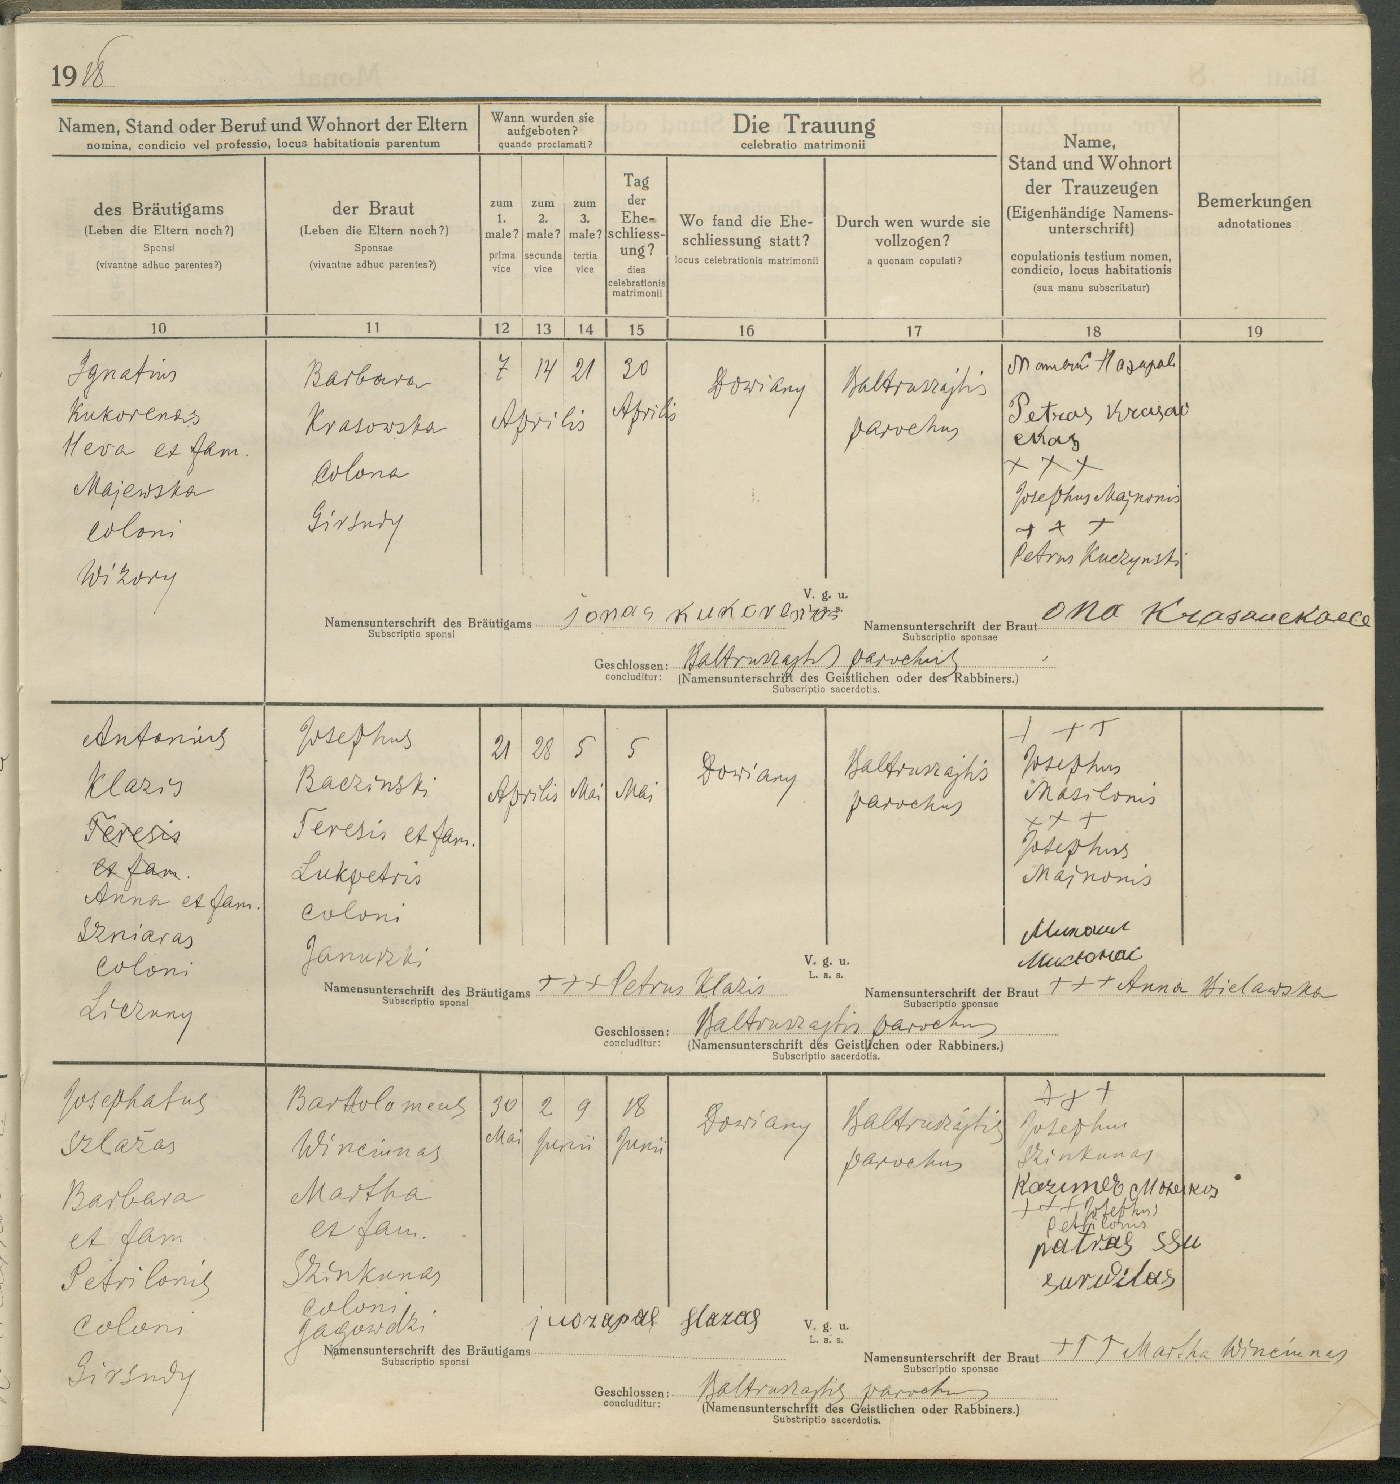 1918
Namen, Stand oder Beruf und Wohnort der Eltern
nomina, condicio vel professio, locus habitationis parentum
Wann wurden sie
aufgeboten?
quando proclamati?
Die Trauung
celebratio matrimonii
Name,
Stand und Wohnort
der Trauzeugen
(Eigenhändige Namens-
unterschrift)
copulationis testium nomen,
condicio, locus habitationis
(sua manu subscribatur)
Bemerkungen
adnotationes
des Bräutigams
(Leben die Eltern noch?)
Sponsi
(vivantne adhuc parentes?)
der Braut
(Leben die Eltern noch?)
Sponsae
(vivantne adhuc parentes?)
zum
1.
male?
prima
vice
zum
2.
male?
secunda
vice
zum
3.
male?
tertia
vice
Tag
der
Ehe-
schliess-
ung?
dies
celebrationis
matrimonii
Wo fand die Ehe-
schliessung statt?
locus celebrationis matrimonii
Durch wen wurde sie
vollzogen?
a quonam copulati?
10 11 12 13 14 15 16 17 18 19
Ignatius
Kukorenas
Heva et fam.
Majewska
coloni
Wiżory
Barbara
Krasowska
colona
Girżudy
7 14 21
Aprilis
30
Aprilis
Dowiany
Baltruszajtis
parochus
Petras Krasau
ckas
+ + +
Josephus Majnonis
+ + +
Petrus Kuczynski
V. g. u.
Namensunterschrift des Bräutigams jonas
Subscriptio sponsi
Namensunterschrift der Braut ona
Subscriptio sponsae
Geschlossen: Baltruszajtis parochus
concluditur: (Namensunterschrift des Geistlichen oder des Rabbiners.)
Subscriptio sacerdotis.
Antonius
Klazis
Teresis
et fam.
Anna et fam.
Szniaras
coloni
Liczuny
Josephus
Baczinski
Teresis et fam.
Lukpetris
coloni
Januszki
21 28 5
Aprilis Mai
5
Mai
Dowiany
Baltruszajtis
parochus
+ + +
Josephus
Masilonis
+ + +
Josephus
Majnonis
V. g. u.
L. a. s.
Namensunterschrift des Bräutigams +++ Petrus Klazis
Subscriptio sponsi
Namensunterschrift der Braut +++ Anna Bielawska
Subscriptio sponsae
Geschlossen: Baltruszajtis parochus
concluditur: (Namensunterschrift des Geistlichen oder Rabbiners.)
Subscriptio sacerdotis.
Josephatus
Szlażas
Barbara
et fam
Petrilonis
coloni
Girżudy
Bartolomeus
Winciunas
Martha
et fam.
Szinkunas
coloni
Gagowdzi
30 2 9
Mai Junii
18
Junii
Dowiany
Baltruszajtis
parochus
+ + +
Josephus
Szinkunas
Kazimer
+ + + Josephus
Petrilonis
petras
V. g. u.
L. a. s.
Namensunterschrift des Bräutigams juozapas slazas
Subscriptio sponsi
Namensunterschrift der Braut +++ Martha Winciunas
Subscriptio sponsae
Geschlossen: Baltruszajtis parochus
concluditur: (Namensunterschrift des Geistlichen oder des Rabbiners.)
Substriptio sacerdotis.